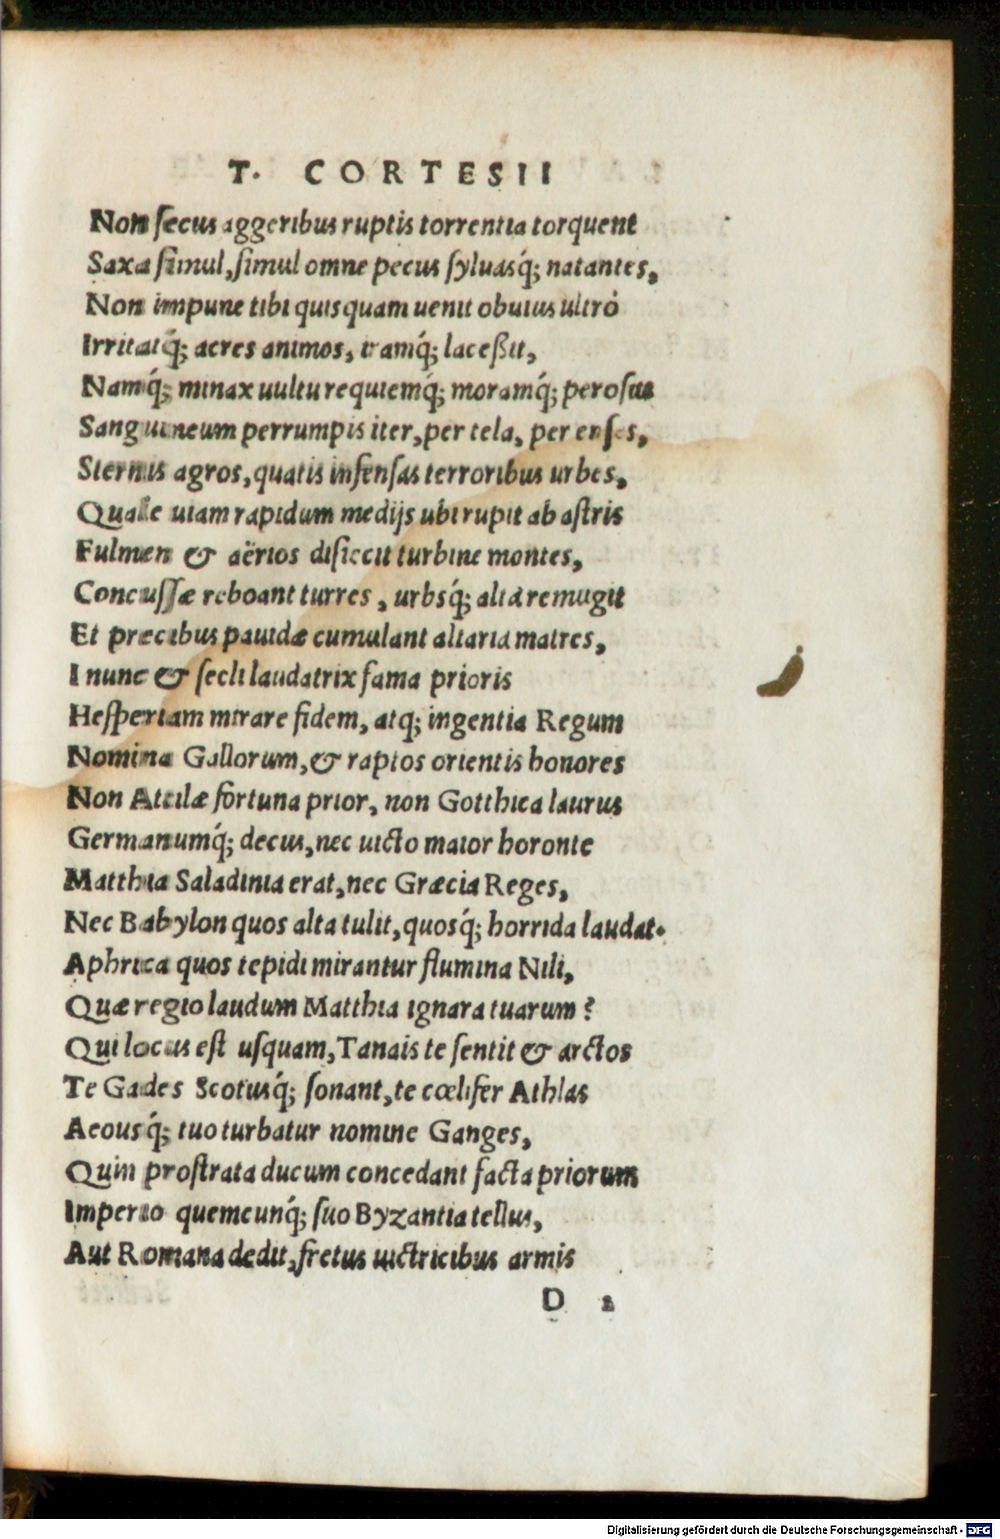 T. CORTESII
Non secus aggeribus ruptis torrentia torquent
Saxa simul, simul omne pecus syluasq́; natantes,
Non impune tibi quisquam uenit obuius ultrò
Irritatq́; acres animos, iramq́; laceßit,
Namq́; minax uultu requiemq́; moramq́; perosus
Sanguineum perrumpis iter, per tela, per enses,
Sternis agros, quatis infensas terroribus urbes,
Quale uiam rapidum medijs ubi rupit ab astris
Fulmen & aërios disiecit turbine montes,
Concussæ reboant turres, urbsq́; alta remugit
Et precibus pauidæ cumulant altaria matres,
I nunc & secli laudatrix fama prioris
Hesperiam mirare fidem, atq; ingentia Regum
Nomina Gallorum, & raptos orientis honores
Non Attilæ fortuna prior, non Gotthica laurus
Germanumq́; decus, nec uicto maior horonte
Matthia Saladinia erat, nec Græcia Reges,
Nec Babylon quos alta tulit, quosq́; horrida laudat.
Aphrica quos tepidi mirantur flumina Nili,
Quæ regio laudum Matthia ignara tuarum?
Qui locus est usquam, Tanais te sentit & arctos
Te Gades Scotusq́; sonant, te cœlifer Athlas
Aeousq́; tuo turbatur nomine Ganges,
Quin prostrata ducum concedant facta priorum
Imperio quemcunq́; suo Byzantia tellus,
Aut Romana dedit, fretus uictricibus armis
D 2
Digitalisierung gefördert durch die Deutsche Forschungsgemeinschaft - DFG